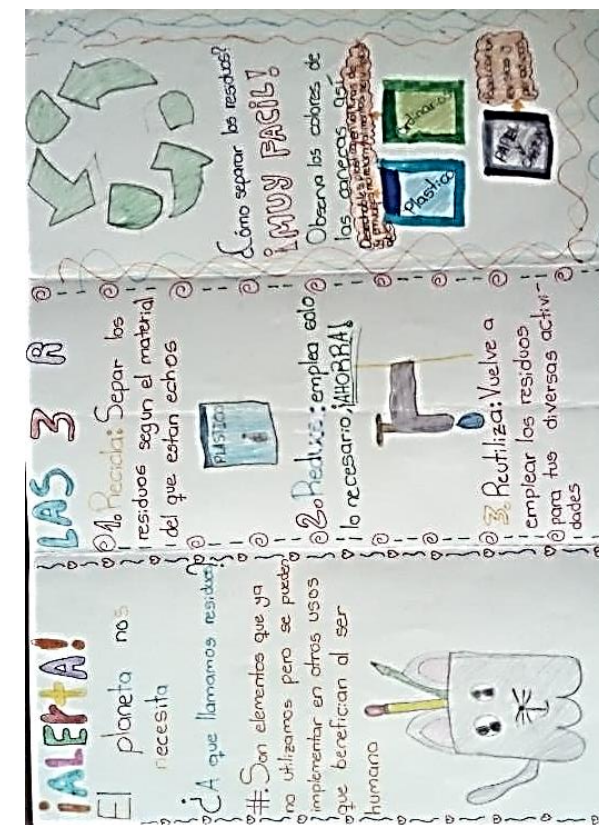 ¡ALERTA!
El planeta nos
necesita
¿A que llamamos residuos?
#. Son elementos que ya
no utilizamos pero se pueden
implementar en otros usos
que benefician al ser
humano
LAS 3 R
1. Recicla: Separ los
residuos segun el material
del que estan echos
PLASTICO
2. Reduce: emplea solo
lo necesario ¡AHORRA!
3. Reutiliza: Vuelve a
emplear los residuos
para tus diversas activi-
dades
¿Cómo separar los residuos?
¡MUY FACIL!
Observa los colores de
las canecas así
Plastico
ordinarios
PAPEL Y